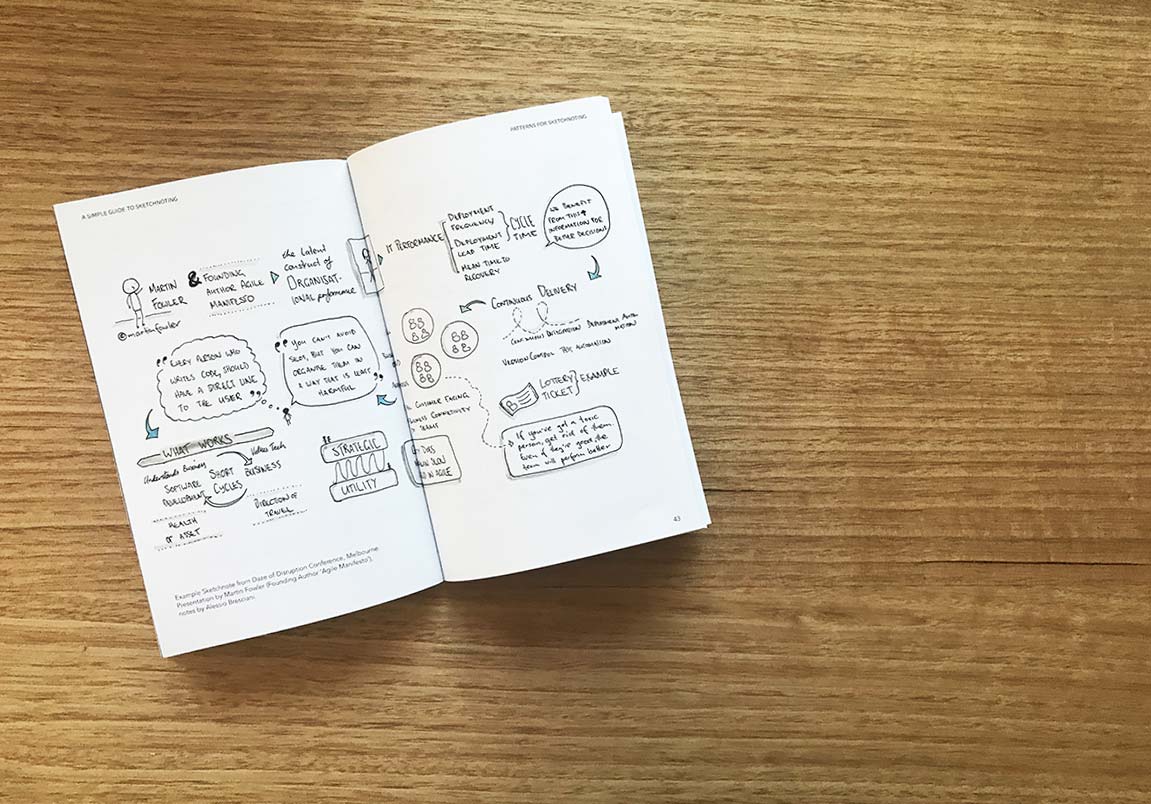 A SIMPLE GUIDE TO SKETCHNOTING
MARTIN
FOWLER
@martinfowler
&
FOUNDING
AUTHOR AGILE
MANIFESTO
the latent
construct of
ORGANISAT-
IONAL performance
"EVERY PERSON WHO
WRITES CODE, SHOULD
HAVE A DIRECT LINE
TO THE USER"
"YOU CAN'T AVOID
SILOS, BUT YOU CAN
ORGANISE THEM IN
A WAY THAT IS LEAST
HARMFUL"
WHAT WORKS
Understands Business
Values Tech
SOFTWARE
DEVELOPMENT
SHORT
CYCLES
BUSINESS
HEALTH
OF ASSET
DIRECTION OF
TRAVEL
STRATEGIC
UTILITY
Example Sketchnote from Daze of Disruption Conference, Melbourne
Presentation by Martin Fowler (Founding Author 'Agile Manifesto'),
notes by Alessio Bresciani.
PATTERNS FOR SKETCHNOTING
IT PERFORMANCE
DEPLOYMENT
FREQUENCY
DEPLOYMENT
LEAD TIME
MEAN TIME TO
RECOVERY
CYCLE
TIME
WE BENEFIT
FROM THIS
INFORMATION FOR
BETTER DECISIONS
CONTINUOUS DELIVERY
CONTINUOUS INTEGRATION DEPLOYMENT AUTO
MATION
VERSION CONTROL TEST AUTOMATION
CUSTOMER FACING
BUSINESS CONNECTIVITY
TEAMS
LOTTERY
TICKET
EXAMPLE
DOES
SLOW
IN AGILE
If you've got a toxic
person, get rid of them.
Even if they're good, the
team will perform better
43